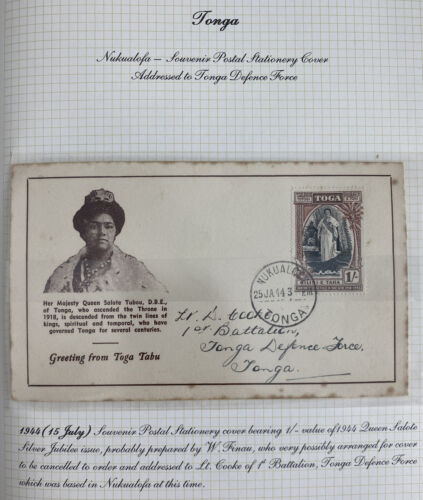 Tonga
Nukualofa – Souvenir Postal Stationery Cover
Addressed to Tonga Defence Force
TOGA
1/-
NUKUALOFA
25 JA 44
TONGA
Her Majesty Queen Salote Tubou, D.B.E.,
of Tonga, who ascended the Throne in
1918, is descended from the twin lines of
kings, spiritual and temporal, who have
governed Tonga for several centuries.
Greeting from Toga Tabu
Lt. D. Cooke
1st Battalion,
Tonga Defence Force,
Tonga.
1944 (15 July) Souvenir Postal Stationery cover bearing 1/- value of 1944 Queen Salote
Silver Jubilee issue, probably prepared by W. Finau, who very possibly arranged for cover
to be cancelled to order and addressed to Lt. Cooke of 1st Battalion, Tonga Defence Force
which was based in Nukualofa at this time.